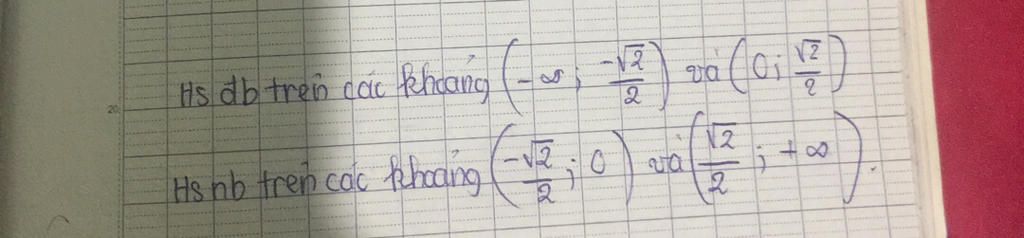 Hs đb trên các khoảng (-∞; -√2/2) và (0; √2/2)
Hs nb trên các khoảng (-√2/2; 0) và (√2/2; +∞).